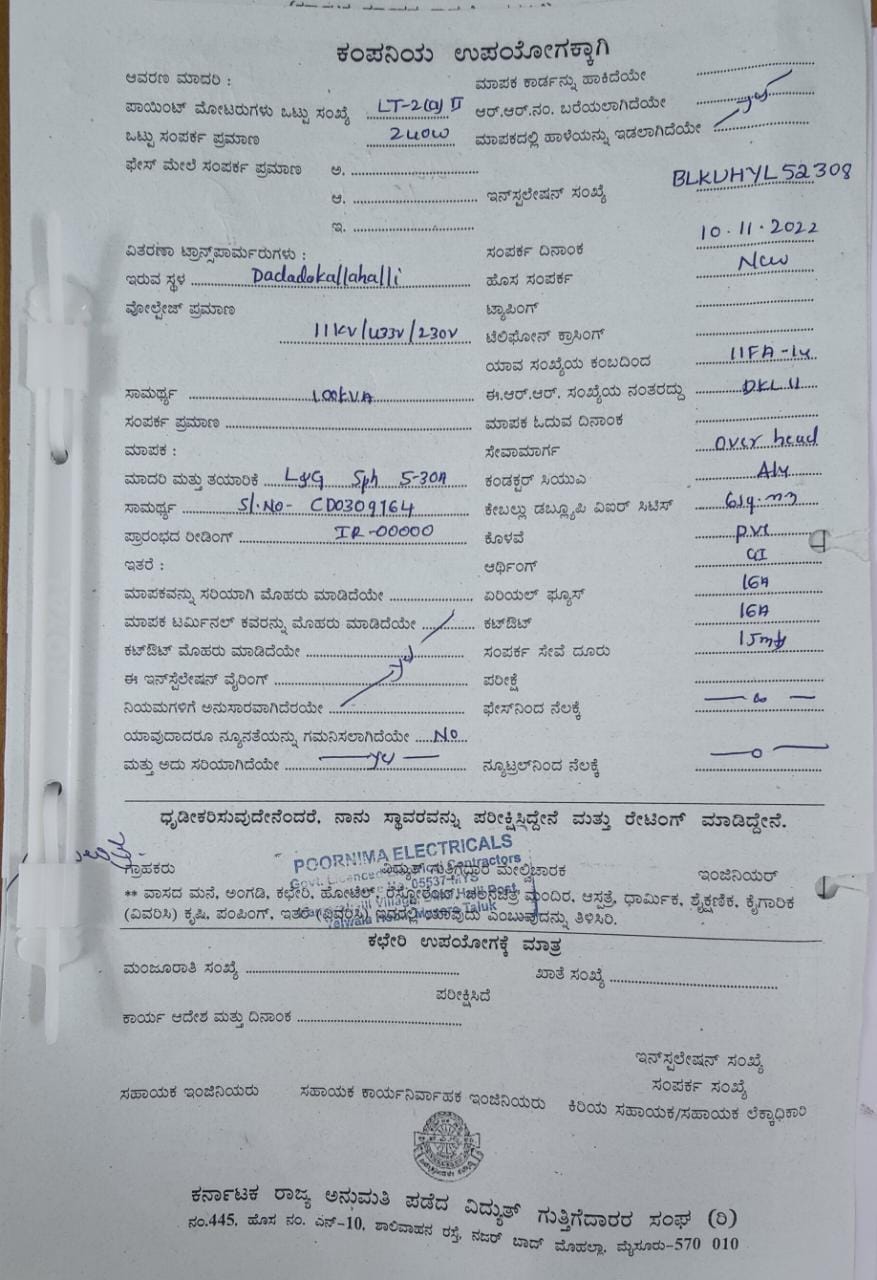 ಕಂಪನಿಯ ಉಪಯೋಗಕ್ಕಾಗಿ
ಆವರಣ ಮಾದರಿ : ಮಾಪಕ ಕಾರ್ಡನ್ನು ಹಾಕಿದೆಯೇ
ಪಾಯಿಂಟ್ ಮೋಟರುಗಳು ಒಟ್ಟು ಸಂಖ್ಯೆ LT-2(a) II ಆರ್.ಆರ್.ನಂ. ಬರೆಯಲಾಗಿದೆಯೇ
ಒಟ್ಟು ಸಂಪರ್ಕ ಪ್ರಮಾಣ 240W ಮಾಪಕದಲ್ಲಿ ಹಾಳೆಯನ್ನು ಇಡಲಾಗಿದೆಯೇ
ಫೇಸ್ ಮೇಲೆ ಸಂಪರ್ಕ ಪ್ರಮಾಣ ಅ.
ಆ. ಇನ್‌ಸ್ಪಲೇಷನ್ ಸಂಖ್ಯೆ BLKUHYL52308
ಇ.
ವಿತರಣಾ ಟ್ರಾನ್ಸ್‌ಪಾರ್ಮರುಗಳು : ಸಂಪರ್ಕ ದಿನಾಂಕ 10.11.2022
ಇರುವ ಸ್ಥಳ Dadadakallahalli ಹೊಸ ಸಂಪರ್ಕ New
ವೋಲ್ಟೇಜ್ ಪ್ರಮಾಣ ಟ್ಯಾಪಿಂಗ್
11kV/433V/230V ಟೆಲಿಫೋನ್ ಕ್ರಾಸಿಂಗ್
ಯಾವ ಸಂಖ್ಯೆಯ ಕಂಬದಿಂದ 11FA-14
ಸಾಮರ್ಥ್ಯ 100kVA ಈ.ಆರ್.ಆರ್. ಸಂಖ್ಯೆಯ ನಂತರದ್ದು DKL 11
ಸಂಪರ್ಕ ಪ್ರಮಾಣ ಮಾಪಕ ಓದುವ ದಿನಾಂಕ
ಮಾಪಕ : ಸೇವಾಮಾರ್ಗ Over head
ಮಾದರಿ ಮತ್ತು ತಯಾರಿಕೆ L&G Sph 5-30A ಕಂಡಕ್ಟರ್ ಸಿಯುವಿ Aly
ಸಾಮರ್ಥ್ಯ Sl.No- CD0309164 ಕೇಬಲ್ಲು ಡಬ್ಲ್ಯೂಪಿ ವಿಐರ್ ಸಿಟಿಸ್
ಪ್ರಾರಂಭದ ರೀಡಿಂಗ್ IR-00000 ಕೊಳವೆ PVC
ಇತರೆ : ಆರ್ಥಿಂಗ್ GI
ಮಾಪಕವನ್ನು ಸರಿಯಾಗಿ ಮೊಹರು ಮಾಡಿದೆಯೇ ಏರಿಯಲ್ ಫ್ಯೂಸ್ 16A
ಮಾಪಕ ಟರ್ಮಿನಲ್ ಕವರನ್ನು ಮೊಹರು ಮಾಡಿದೆಯೇ ಕಟ್‌ಔಟ್ 16A
ಕಟ್‌ಔಟ್ ಮೊಹರು ಮಾಡಿದೆಯೇ ಸಂಪರ್ಕ ಸೇವೆ ದೂರು 15mts
ಈ ಇನ್‌ಸ್ಪೆಲೇಷನ್ ವೈರಿಂಗ್ ಪರೀಕ್ಷೆ
ನಿಯಮಗಳಿಗೆ ಅನುಸಾರವಾಗಿದೆರಯೇ ಫೇಸ್‌ನಿಂದ ನೆಲಕ್ಕೆ
ಯಾವುದಾದರೂ ನ್ಯೂನತೆಯನ್ನು ಗಮನಿಸಲಾಗಿದೆಯೇ No
ಮತ್ತು ಅದು ಸರಿಯಾಗಿದೆಯೇ ನ್ಯೂಟ್ರಲ್‌ನಿಂದ ನೆಲಕ್ಕೆ
ಧೃಡೀಕರಿಸುವುದೇನೆಂದರೆ, ನಾನು ಸ್ಥಾವರವನ್ನು ಪರೀಕ್ಷಿಸ್ದಿದ್ದೇನೆ ಮತ್ತು ರೇಟಿಂಗ್ ಮಾಡಿದ್ದೇನೆ.
POORNIMA ELECTRICALS
Govt. Licenced Electrical Contractors
ಗ್ರಾಹಕರು ವಿದ್ಯುತ್ ಗುತ್ತಿಗೆದಾರ ಮೇಲ್ವಿಚಾರಕ ಇಂಜಿನಿಯರ್
05537-MYS
** ವಾಸದ ಮನೆ, ಅಂಗಡಿ, ಕಛೇರಿ, ಹೋಟೆಲ್, ರೆಸ್ಟೋರೆಂಟ್, ಚಲನಚಿತ್ರ ಮಂದಿರ, ಆಸ್ಪತ್ರೆ, ಧಾರ್ಮಿಕ, ಶೈಕ್ಷಣಿಕ, ಕೈಗಾರಿಕ
(ವಿವರಿಸಿ) ಕೃಷಿ, ಪಂಪಿಂಗ್, ಇತರೆ (ವಿವರಿಸಿ) ಇದರಲ್ಲಿ ಯಾವುದು ಎಂಬುವುದನ್ನು ತಿಳಿಸಿರಿ.
ಕಛೇರಿ ಉಪಯೋಗಕ್ಕೆ ಮಾತ್ರ
ಮಂಜೂರಾತಿ ಸಂಖ್ಯೆ ಖಾತೆ ಸಂಖ್ಯೆ
ಪರೀಕ್ಷಿಸಿದೆ
ಕಾರ್ಯ ಆದೇಶ ಮತ್ತು ದಿನಾಂಕ
ಇನ್‌ಸ್ಪಲೇಷನ್ ಸಂಖ್ಯೆ
ಸಂಪರ್ಕ ಸಂಖ್ಯೆ
ಸಹಾಯಕ ಇಂಜಿನಿಯರು ಸಹಾಯಕ ಕಾರ್ಯನಿರ್ವಾಹಕ ಇಂಜಿನಿಯರು ಕಿರಿಯ ಸಹಾಯಕ/ಸಹಾಯಕ ಲೆಕ್ಕಾಧಿಕಾರಿ
ಕರ್ನಾಟಕ ರಾಜ್ಯ ಅನುಮತಿ ಪಡೆದ ವಿದ್ಯುತ್ ಗುತ್ತಿಗೆದಾರರ ಸಂಘ (ರಿ)
ನಂ.445, ಹೊಸ ನಂ. ಎನ್-10, ಶಾಲಿವಾಹನ ರಸ್ತೆ, ನಜರ್ ಬಾದ್ ಮೊಹಲ್ಲಾ, ಮೈಸೂರು-570 010